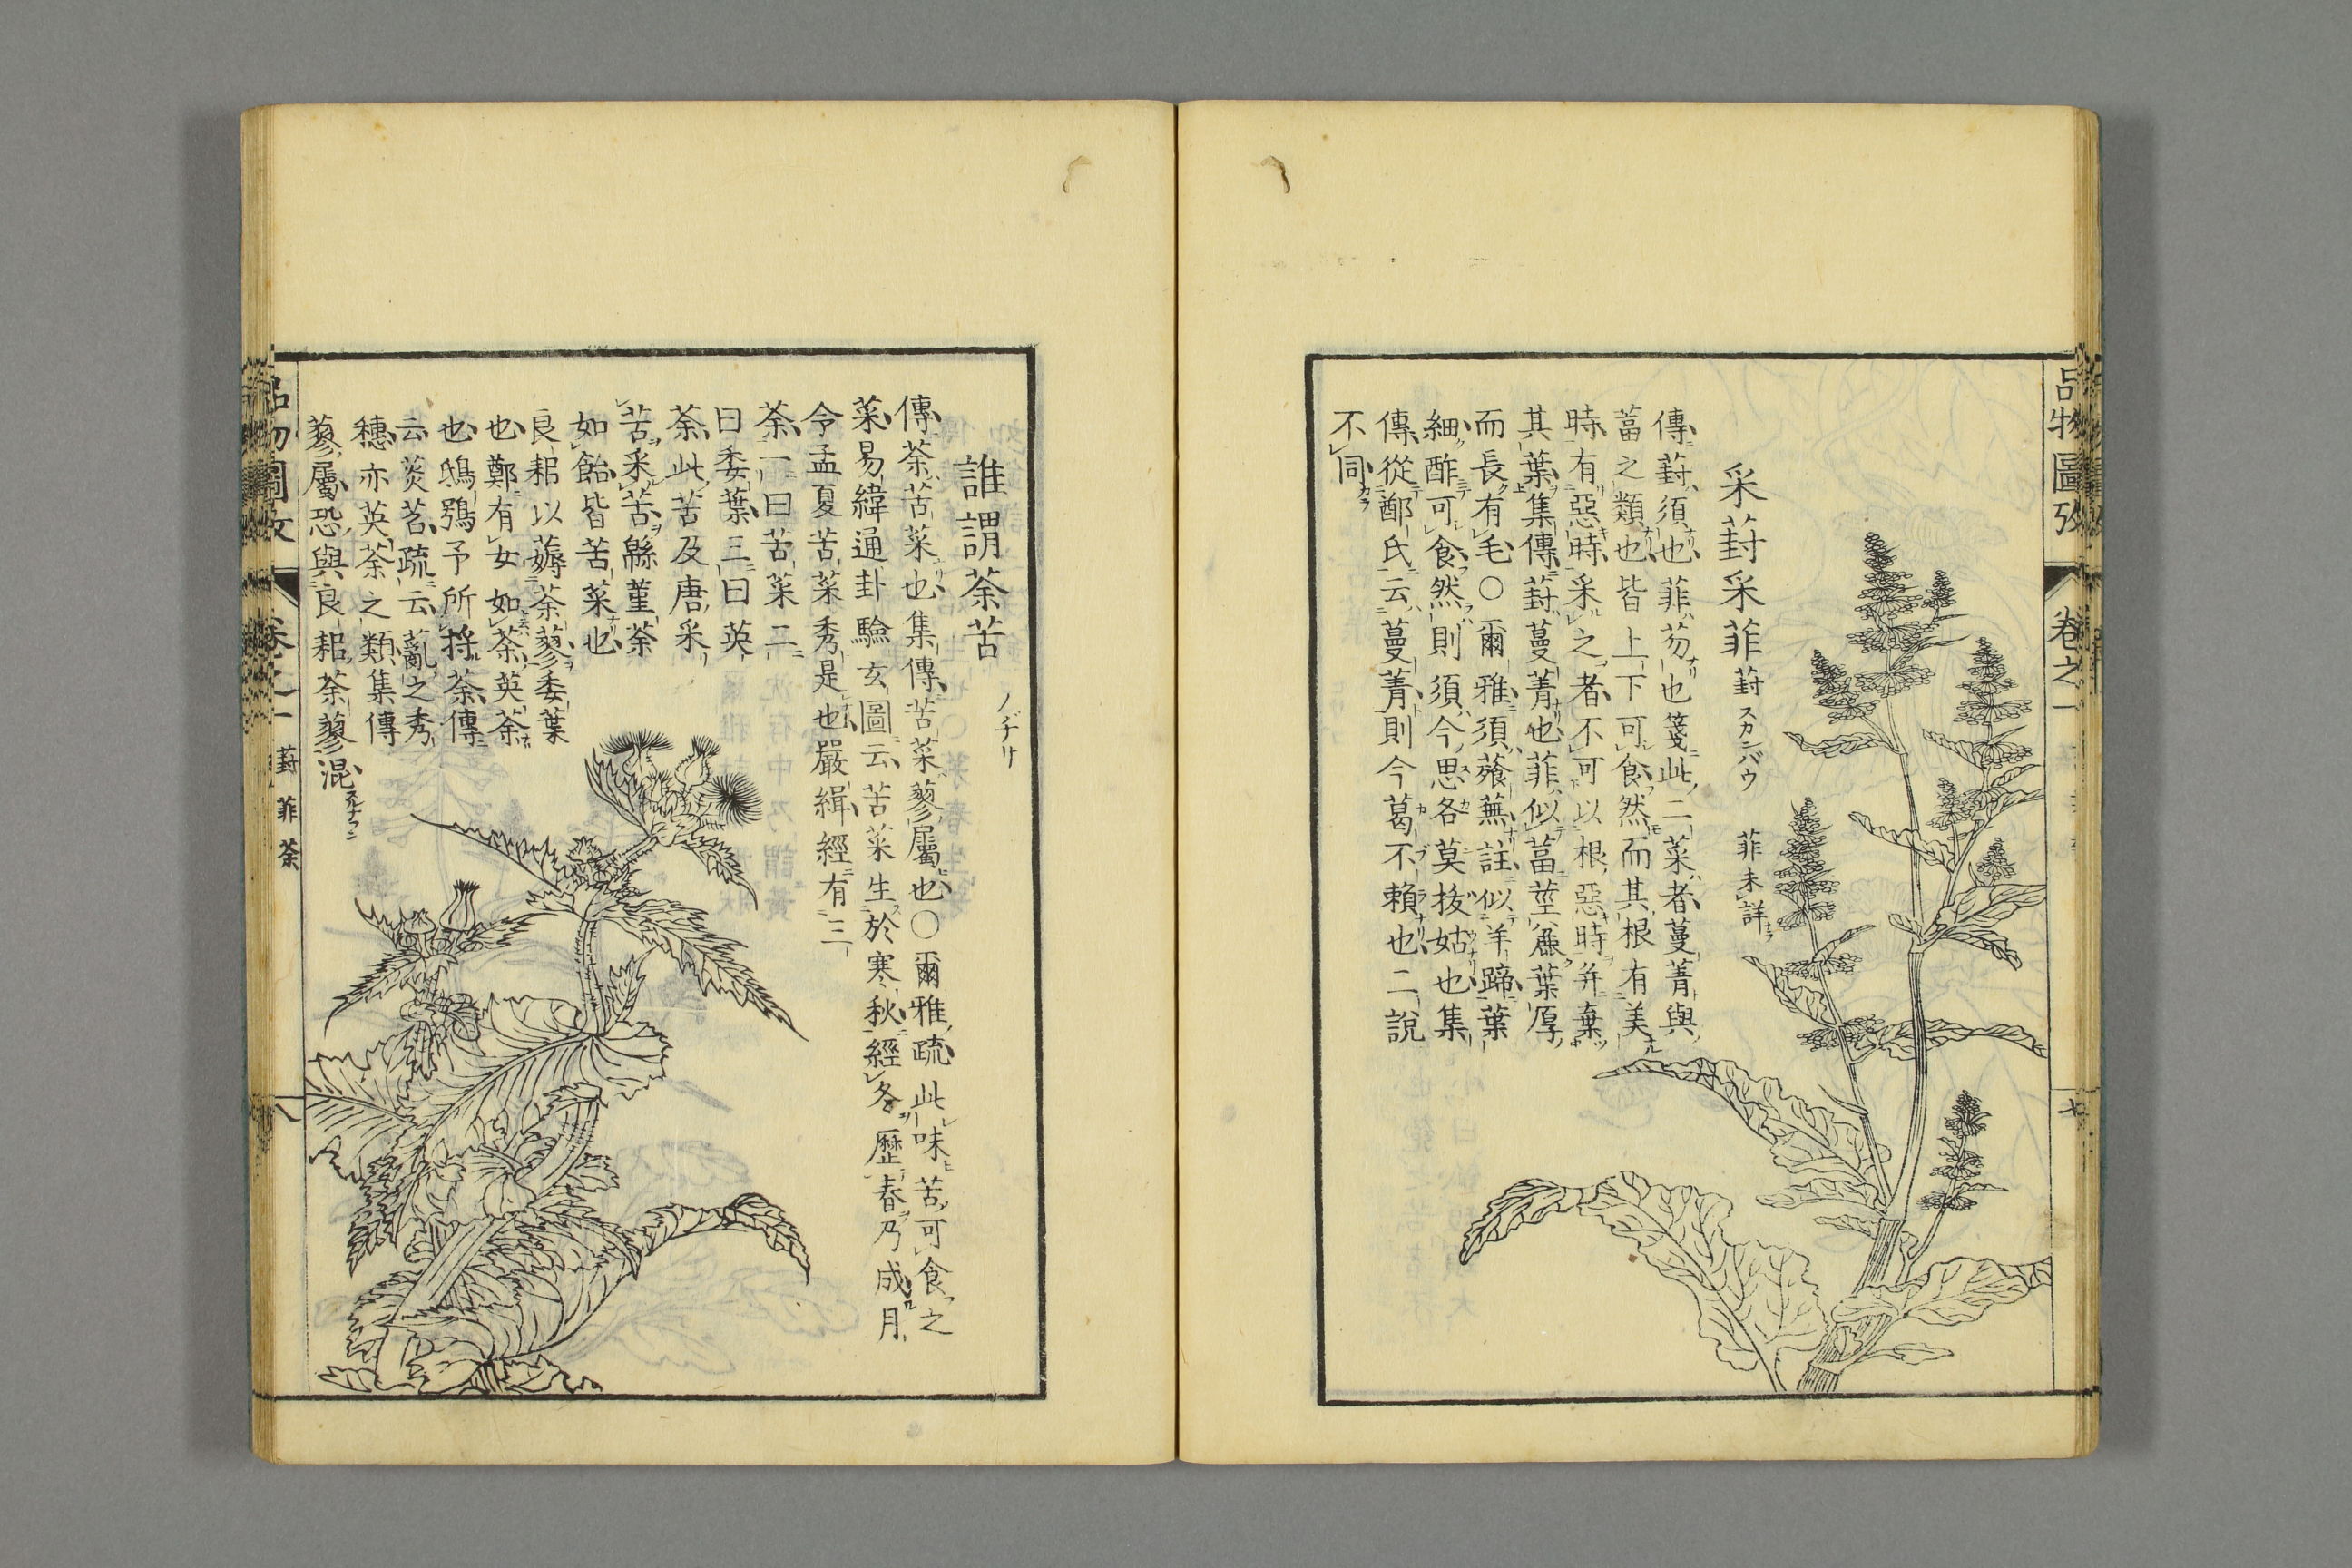 品物圖攷
卷之一
七
采葑采菲葑スカンバウ 菲未詳
傳葑須也菲芴也箋此二菜者蔓菁與
葍之類也皆上下可食然而其根有美
時有惡時采之者不可以根惡時并棄
其葉集傳葑蔓菁也菲似葍莖麤葉厚
而長有毛○爾雅須薞蕪註似羊蹄葉
細酢可食然則須今思各莫拔姑也集
傳從鄭氏云蔓菁則今葛不賴也二說
不同
誰謂荼苦ノゲシ
傳荼苦菜也集傳苦菜蓼屬也○爾雅疏此味苦可食之
菜易緯通卦驗玄圖云苦菜生於寒秋經冬歷春乃成月
令孟夏苦菜秀是也嚴緝經有三
荼一曰苦菜二
曰委葉三曰英
荼此苦及唐采
苦采苦緜菫荼
如飴皆苦菜也
良耜以薅荼蓼委葉
也鄭有女如荼英荼
也鴟鴞予所捋荼傳
云萑苕疏云薍之秀
穗亦英荼之類集傳
蓼屬恐與良耜荼蓼混
品物圖攷
卷之一
葑 菲 荼
八